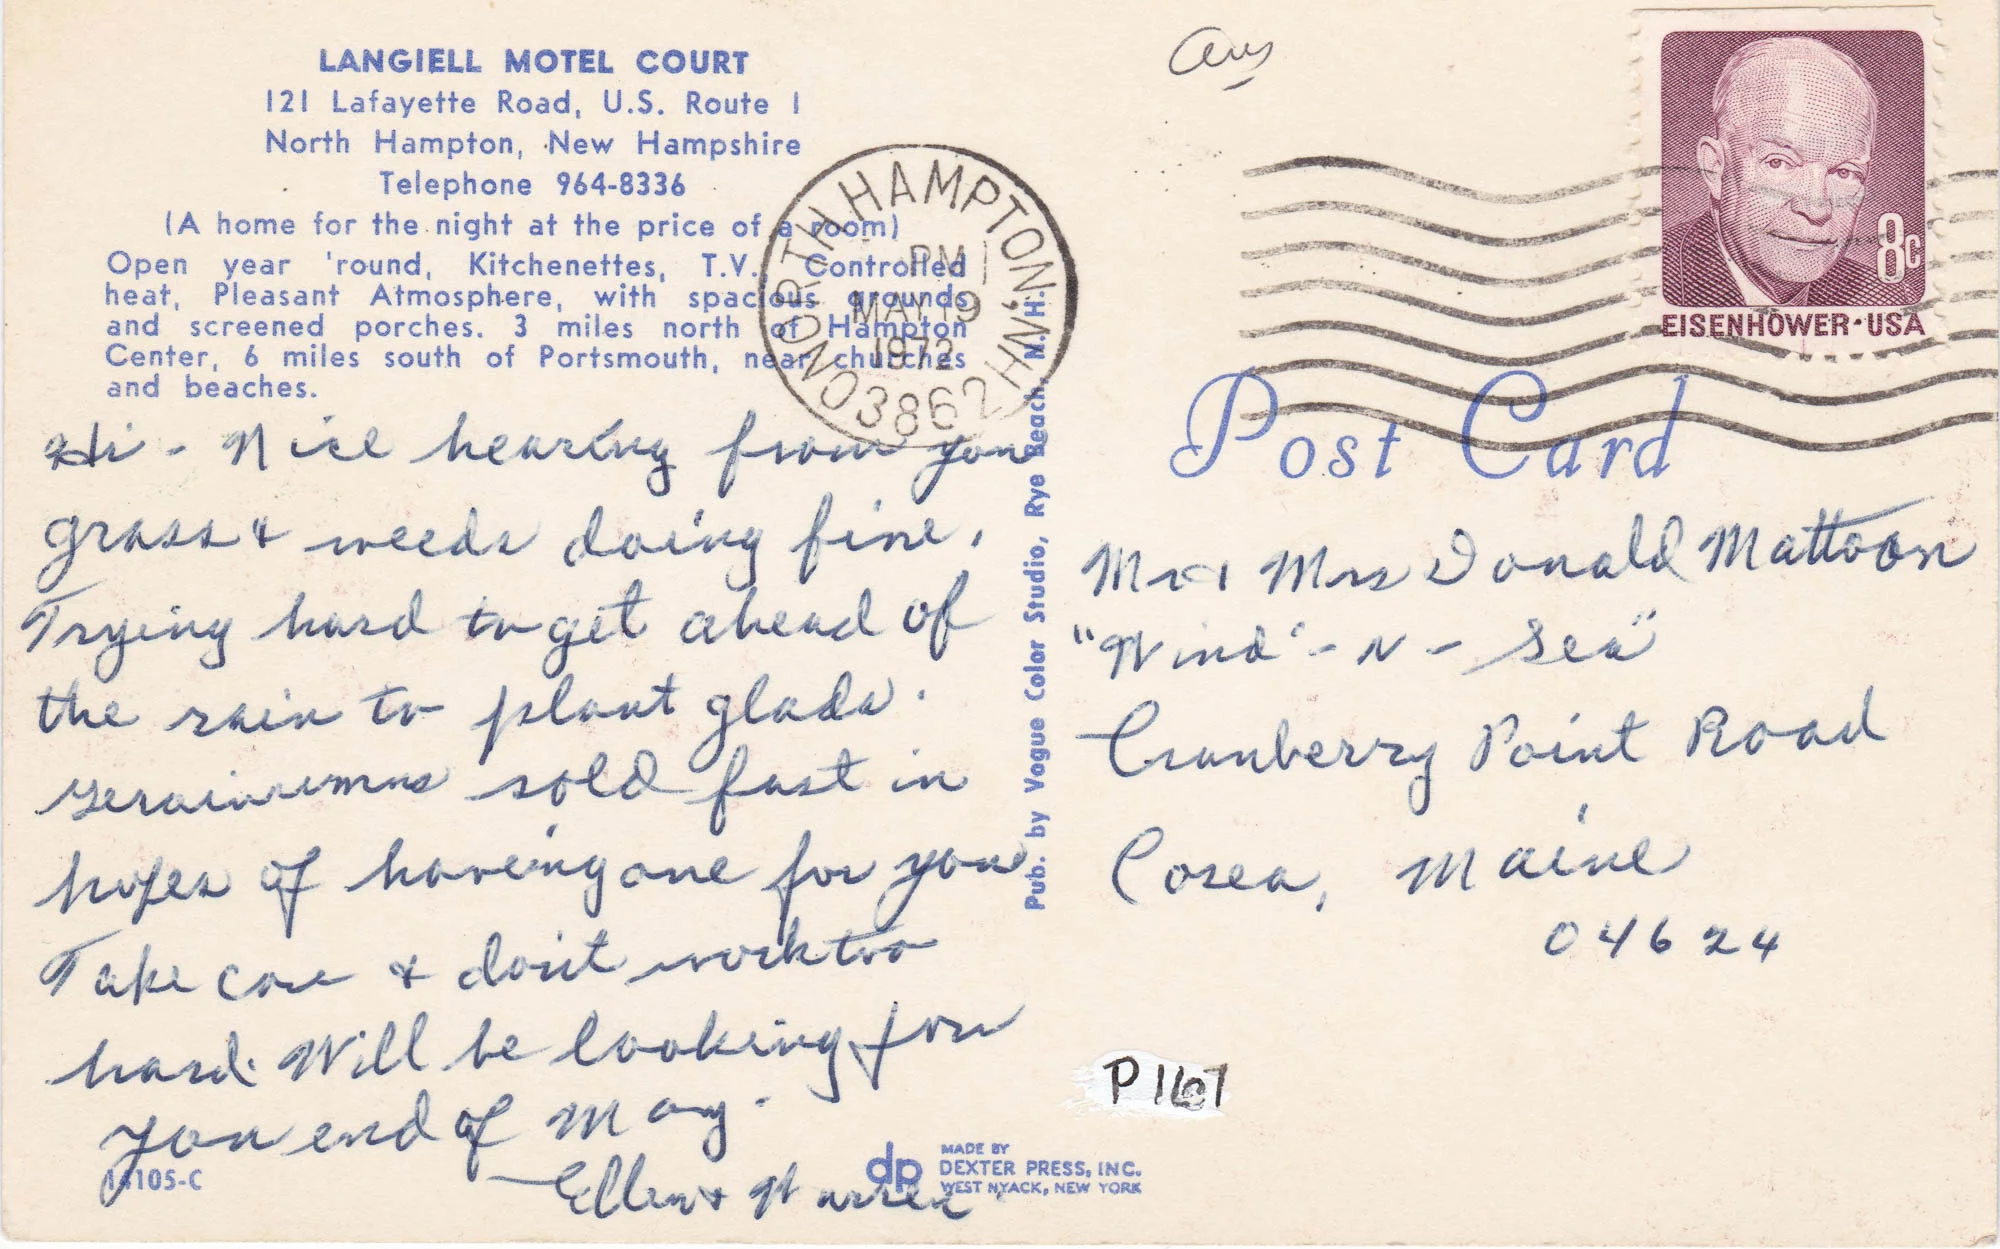 LANGIELL MOTEL COURT
121 Lafayette Road, U.S. Route 1
North Hampton, New Hampshire
Telephone 964-8336
(A home for the night at the price of a room)
Open year 'round, Kitchenettes, T.V., Controlled
heat, Pleasant Atmosphere, with spacious grounds
and screened porches. 3 miles north of Hampton
Center, 6 miles south of Portsmouth, near churches
and beaches.
Hi - Nice hearing from you
grass & weeds doing fine.
Trying hard to get ahead of
the rain to plant glads.
sold fast in
hopes of having one for you
Take care & don't work too
hard. Will be looking for
you end of May.
Ellen & Warren
14105-C
NORTH HAMPTON, NH 03862
PM
MAY 19
1972
Pub. by Vogue Color Studio, Rye Beach, N.H.
dp
MADE BY
DEXTER PRESS, INC.
WEST NYACK, NEW YORK
8c
EISENHOWER·USA
Post Card
Mr & Mrs Donald Mattoon
"Wind'-N-Sea"
Cranberry Point Road
Corea, Maine
04624
P167